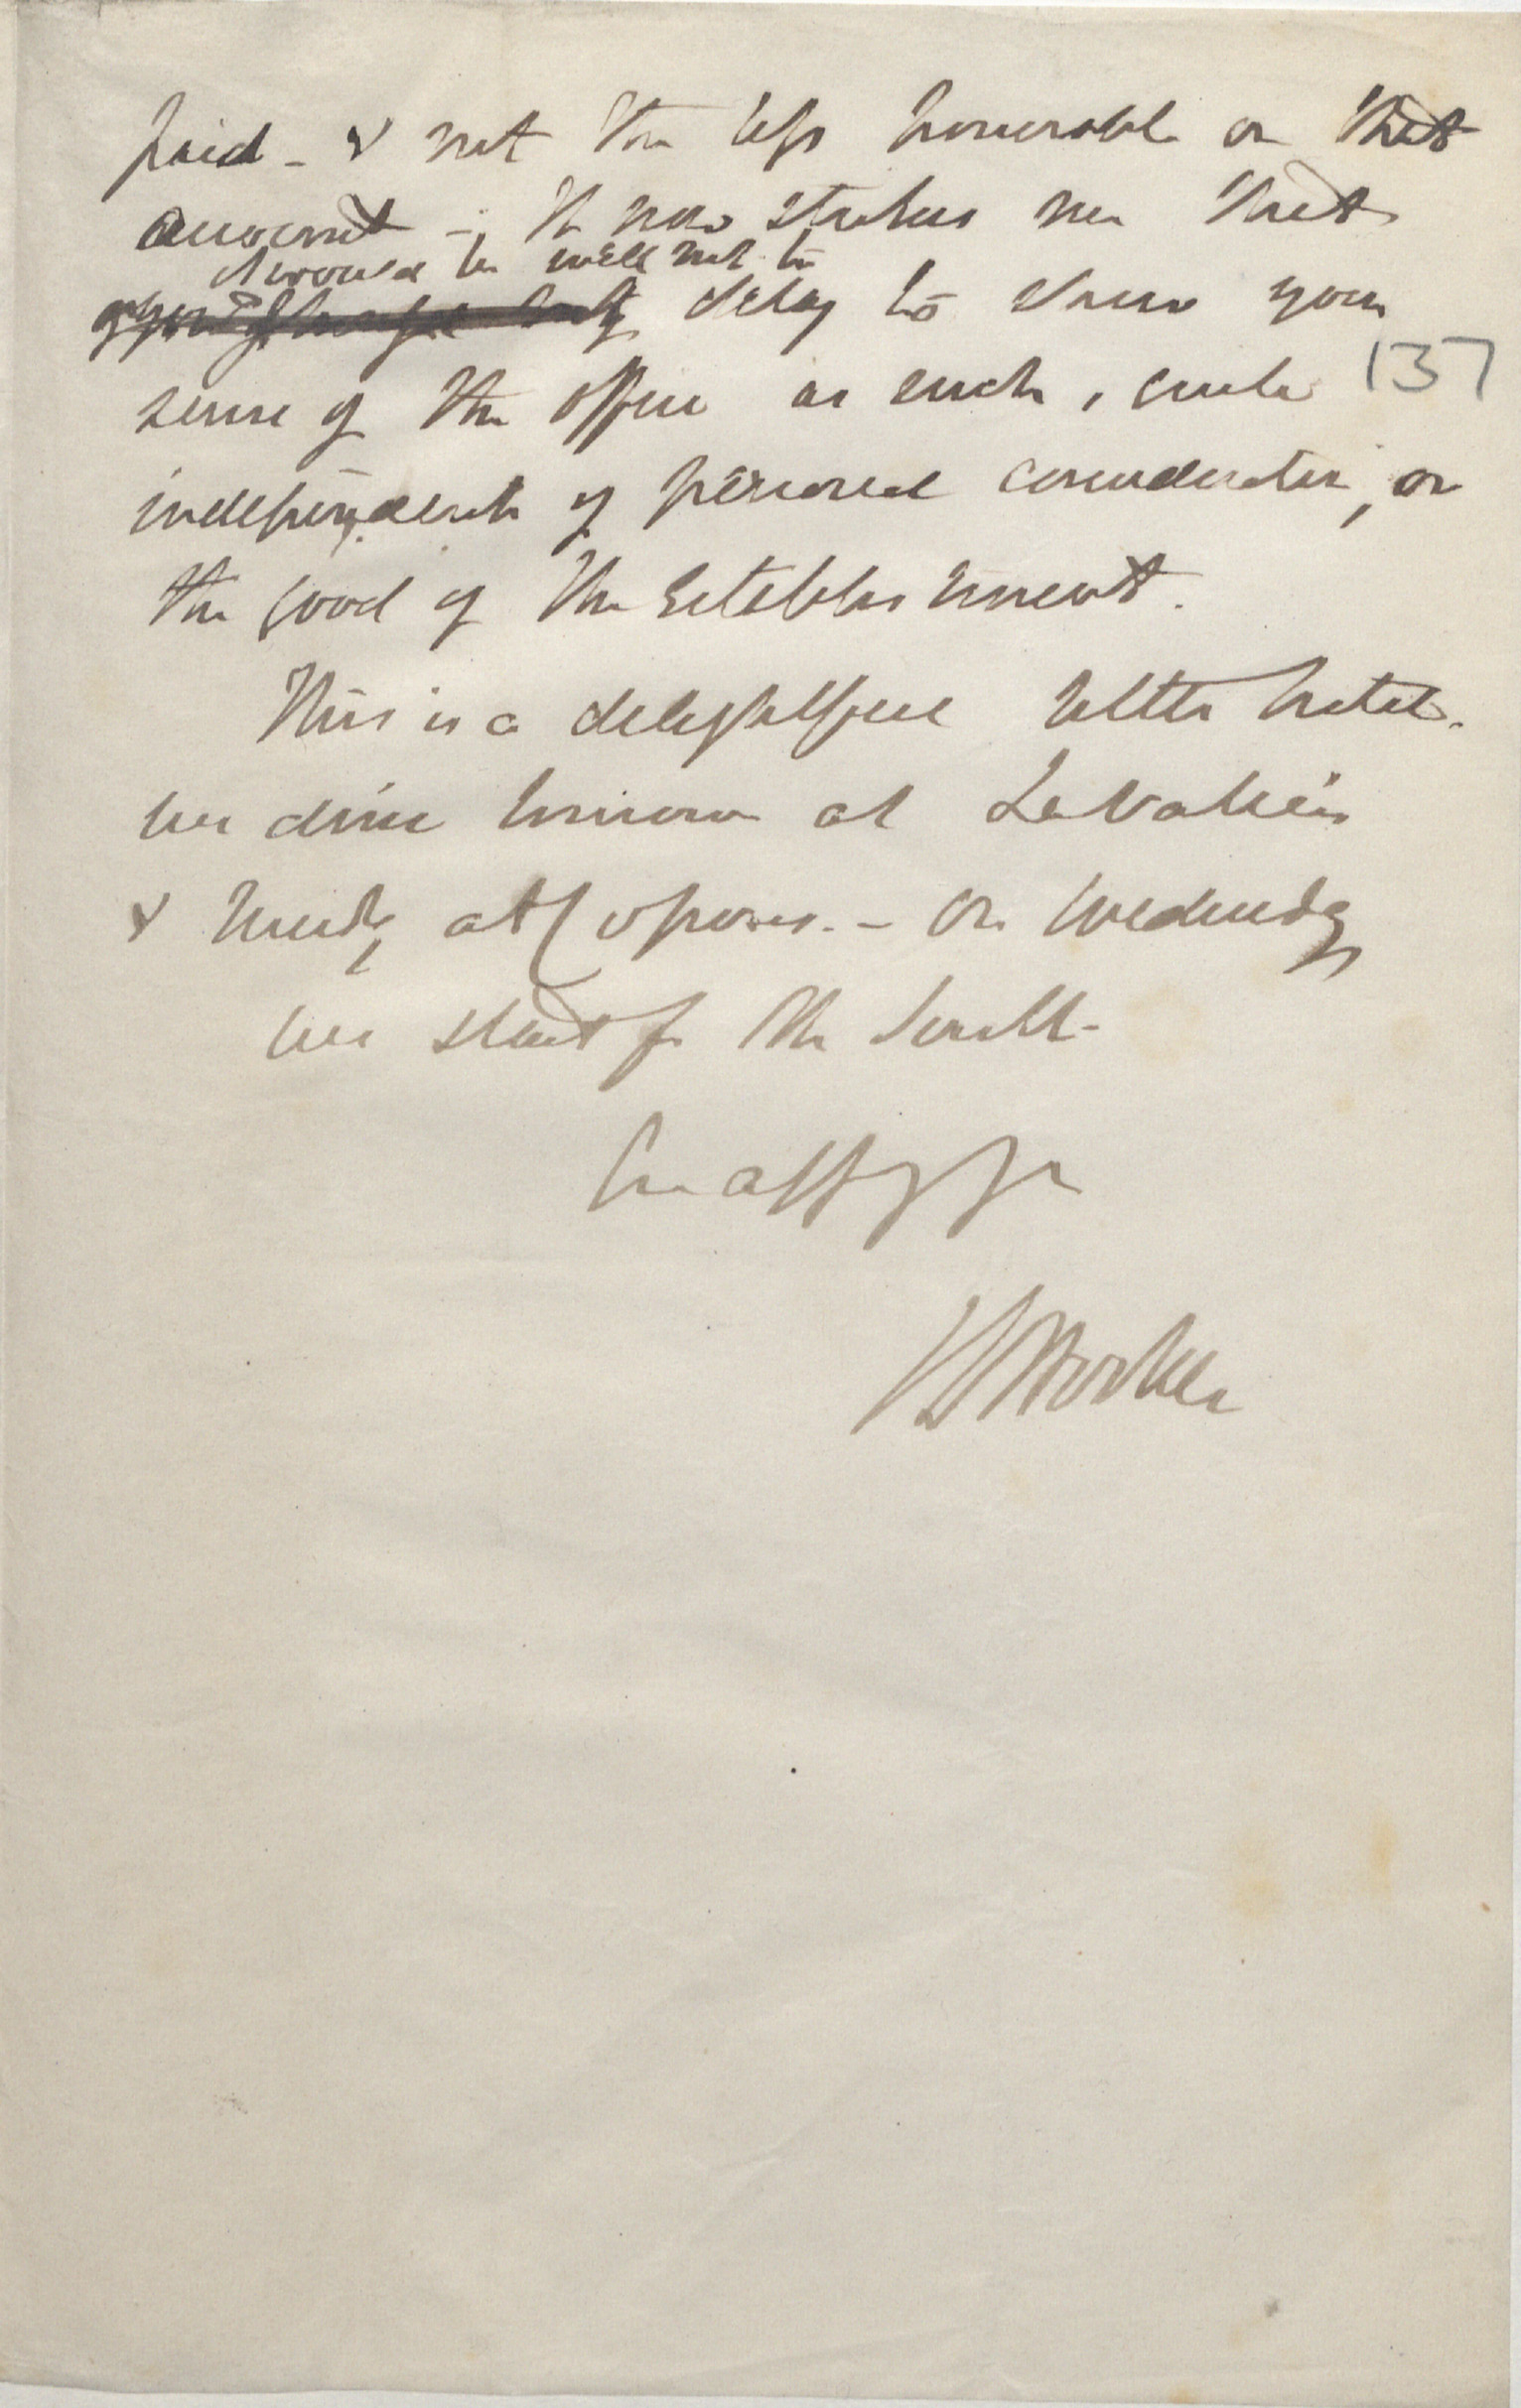 paid – & not the less honorable on that
account –, It now strikes me that
it would be well not to
delay to show your
137
sense of the office as such, quite
independent of personal consideration, or
the good of the Establishment.
This is a delightful little hotel.
we dine tomorrow at
& Tuesday at – On Wednesday
we start for the South –
Ever aff yrs
J D Hooker